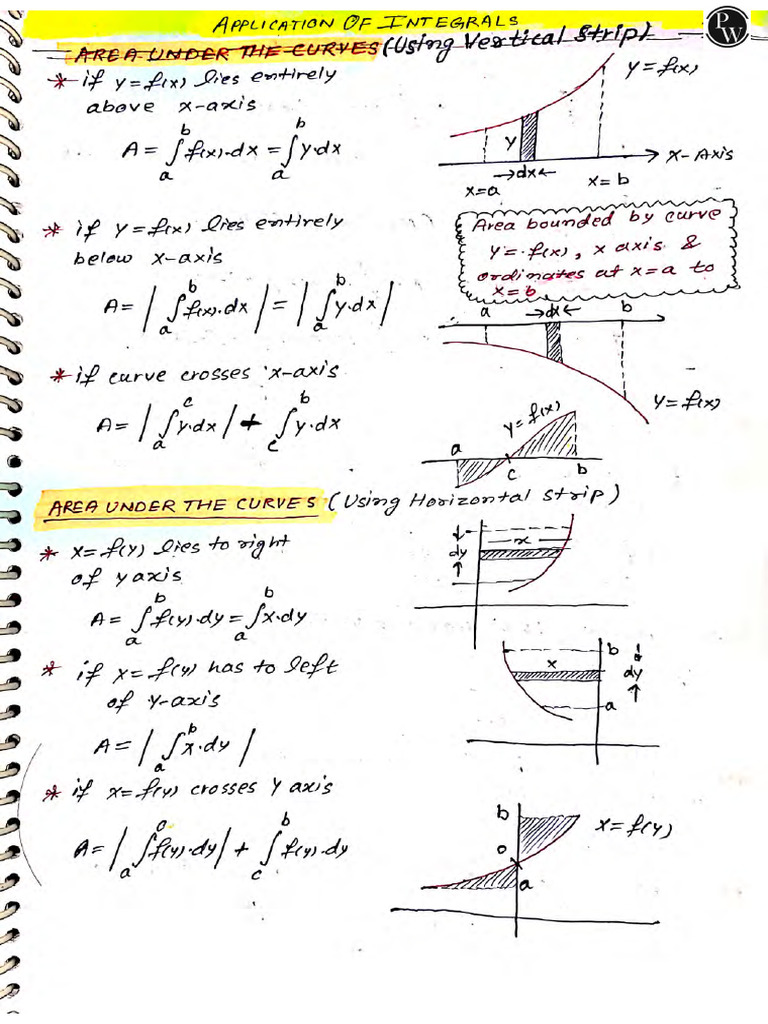 APPLICATION OF INTEGRALS
PW
AREA UNDER THE CURVES (Using Vertical Strip)
* if y = f(x) lies entirely
above x-axis
A = ∫_a^b f(x)·dx = ∫_a^b y·dx
y = f(x)
y
x-Axis
→dx←
x=a
x=b
* if y = f(x) lies entirely
below x-axis
A = |∫_a^b f(x)·dx| = |∫_a^b y·dx|
Area bounded by curve
y = f(x), x axis &
ordinates at x=a to
x=b
a →dx← b
y = f(x)
* if curve crosses x-axis
A = |∫_a^c y·dx| + ∫_c^b y·dx
y = f(x)
a
c
b
AREA UNDER THE CURVES (Using Horizontal Strip)
* x = f(y) lies to right
of y axis
A = ∫_a^b f(y)·dy = ∫_a^b x·dy
x
dy
* if x = f(y) has to left
of y-axis
A = |∫_a^b x·dy|
b
x
dy
a
* if x = f(y) crosses y axis
A = |∫_a^0 f(y)·dy| + ∫_c^b f(y)·dy
b
x = f(y)
0
a